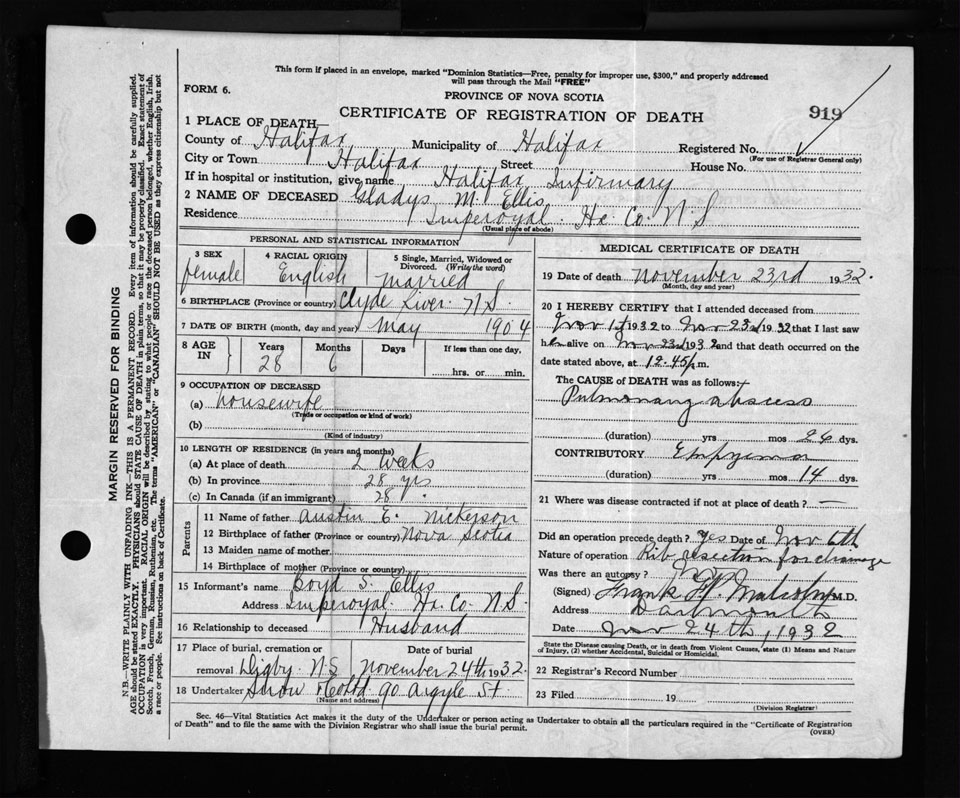 This form if placed in an envelope, marked "Dominion Statistics—Free, penalty for improper use, $300," and properly addressed
will pass through the Mail "FREE"
FORM 6.
PROVINCE OF NOVA SCOTIA
CERTIFICATE OF REGISTRATION OF DEATH
919
1 PLACE OF DEATH—
County of Halifax Municipality of Halifax Registered No.
(For use of Registrar General only)
City or Town Halifax Street House No.
If in hospital or institution, give name Halifax Infirmary
2 NAME OF DECEASED Gladys M. Ellis
Residence Imperoyal. Hx. Co. N S
(Usual place of abode)
PERSONAL AND STATISTICAL INFORMATION
3 SEX
female
4 RACIAL ORIGIN
English
5 Single, Married, Widowed or
Divorced. (Write the word)
married
6 BIRTHPLACE (Province or country) Clyde River. N S.
7 DATE OF BIRTH (month, day and year) May 1904
8 AGE
IN
Years
28
Months
6
Days
If less than one day,
hrs. or min.
9 OCCUPATION OF DECEASED
(a) housewife
(Trade or occupation or kind of work)
(b)
(Kind of industry)
10 LENGTH OF RESIDENCE (in years and months)
(a) At place of death 2 weeks
(b) In province 28 yrs
(c) In Canada (if an immigrant) 28 "
Parents
11 Name of father Austin E. Nickerson
12 Birthplace of father (Province or country) Nova Scotia
13 Maiden name of mother
14 Birthplace of mother (Province or country)
15 Informant's name Boyd S. Ellis
Address Imperoyal. Hx. Co. N S.
16 Relationship to deceased Husband
17 Place of burial, cremation or Date of burial
removal Digby. N S November 24th 1932.
18 Undertaker Snow & Co Ltd 90 Argyle St
(Name and address)
MEDICAL CERTIFICATE OF DEATH
19 Date of death November 23rd 1932.
(Month, day and year)
20 I HEREBY CERTIFY that I attended deceased from
Nov 1st 1932 to Nov 23rd 1932 that I last saw
her alive on Nov 23rd 1932 and that death occurred on the
date stated above, at 12.45 p.m.
The CAUSE of DEATH was as follows:
Pulmonary abscess
(duration) yrs mos 26 dys.
CONTRIBUTORY Empyema
(duration) yrs mos 14 dys.
21 Where was disease contracted if not at place of death?
Did an operation precede death? Yes Date of Nov 6th
Nature of operation Rib resection for drainage
Was there an autopsy?
(Signed) Frank W. Malcolm M.D.
Address Dartmouth
Date Nov 24th, 1932
State the Disease causing Death, or in death from Violent Causes, state (1) Means and Nature
of Injury, (2) whether Accidental, Suicidal or Homicidal.
22 Registrar's Record Number
23 Filed 19
(Division Registrar)
Sec. 46—Vital Statistics Act makes it the duty of the Undertaker or person acting as Undertaker to obtain all the particulars required in the "Certificate of Registration
of Death" and to file the same with the Division Registrar who shall issue the burial permit.
(OVER)
MARGIN RESERVED FOR BINDING
N.B.—WRITE PLAINLY WITH UNFADING INK—THIS IS A PERMANENT RECORD. Every item of information should be carefully supplied.
AGE should be stated EXACTLY. PHYSICIANS should STATE CAUSE OF DEATH in plain terms, so that it may be properly classified. Exact statement of
OCCUPATION is very important. RACIAL ORIGIN will be described by stating to what people or race the deceased person belonged, whether English, Irish,
Scotch, French, German, Russian, Ruthenian, etc. The terms "AMERICAN" or "CANADIAN" SHOULD NOT BE USED as they express citizenship but not
a race or people. See instructions on back of Certificate.